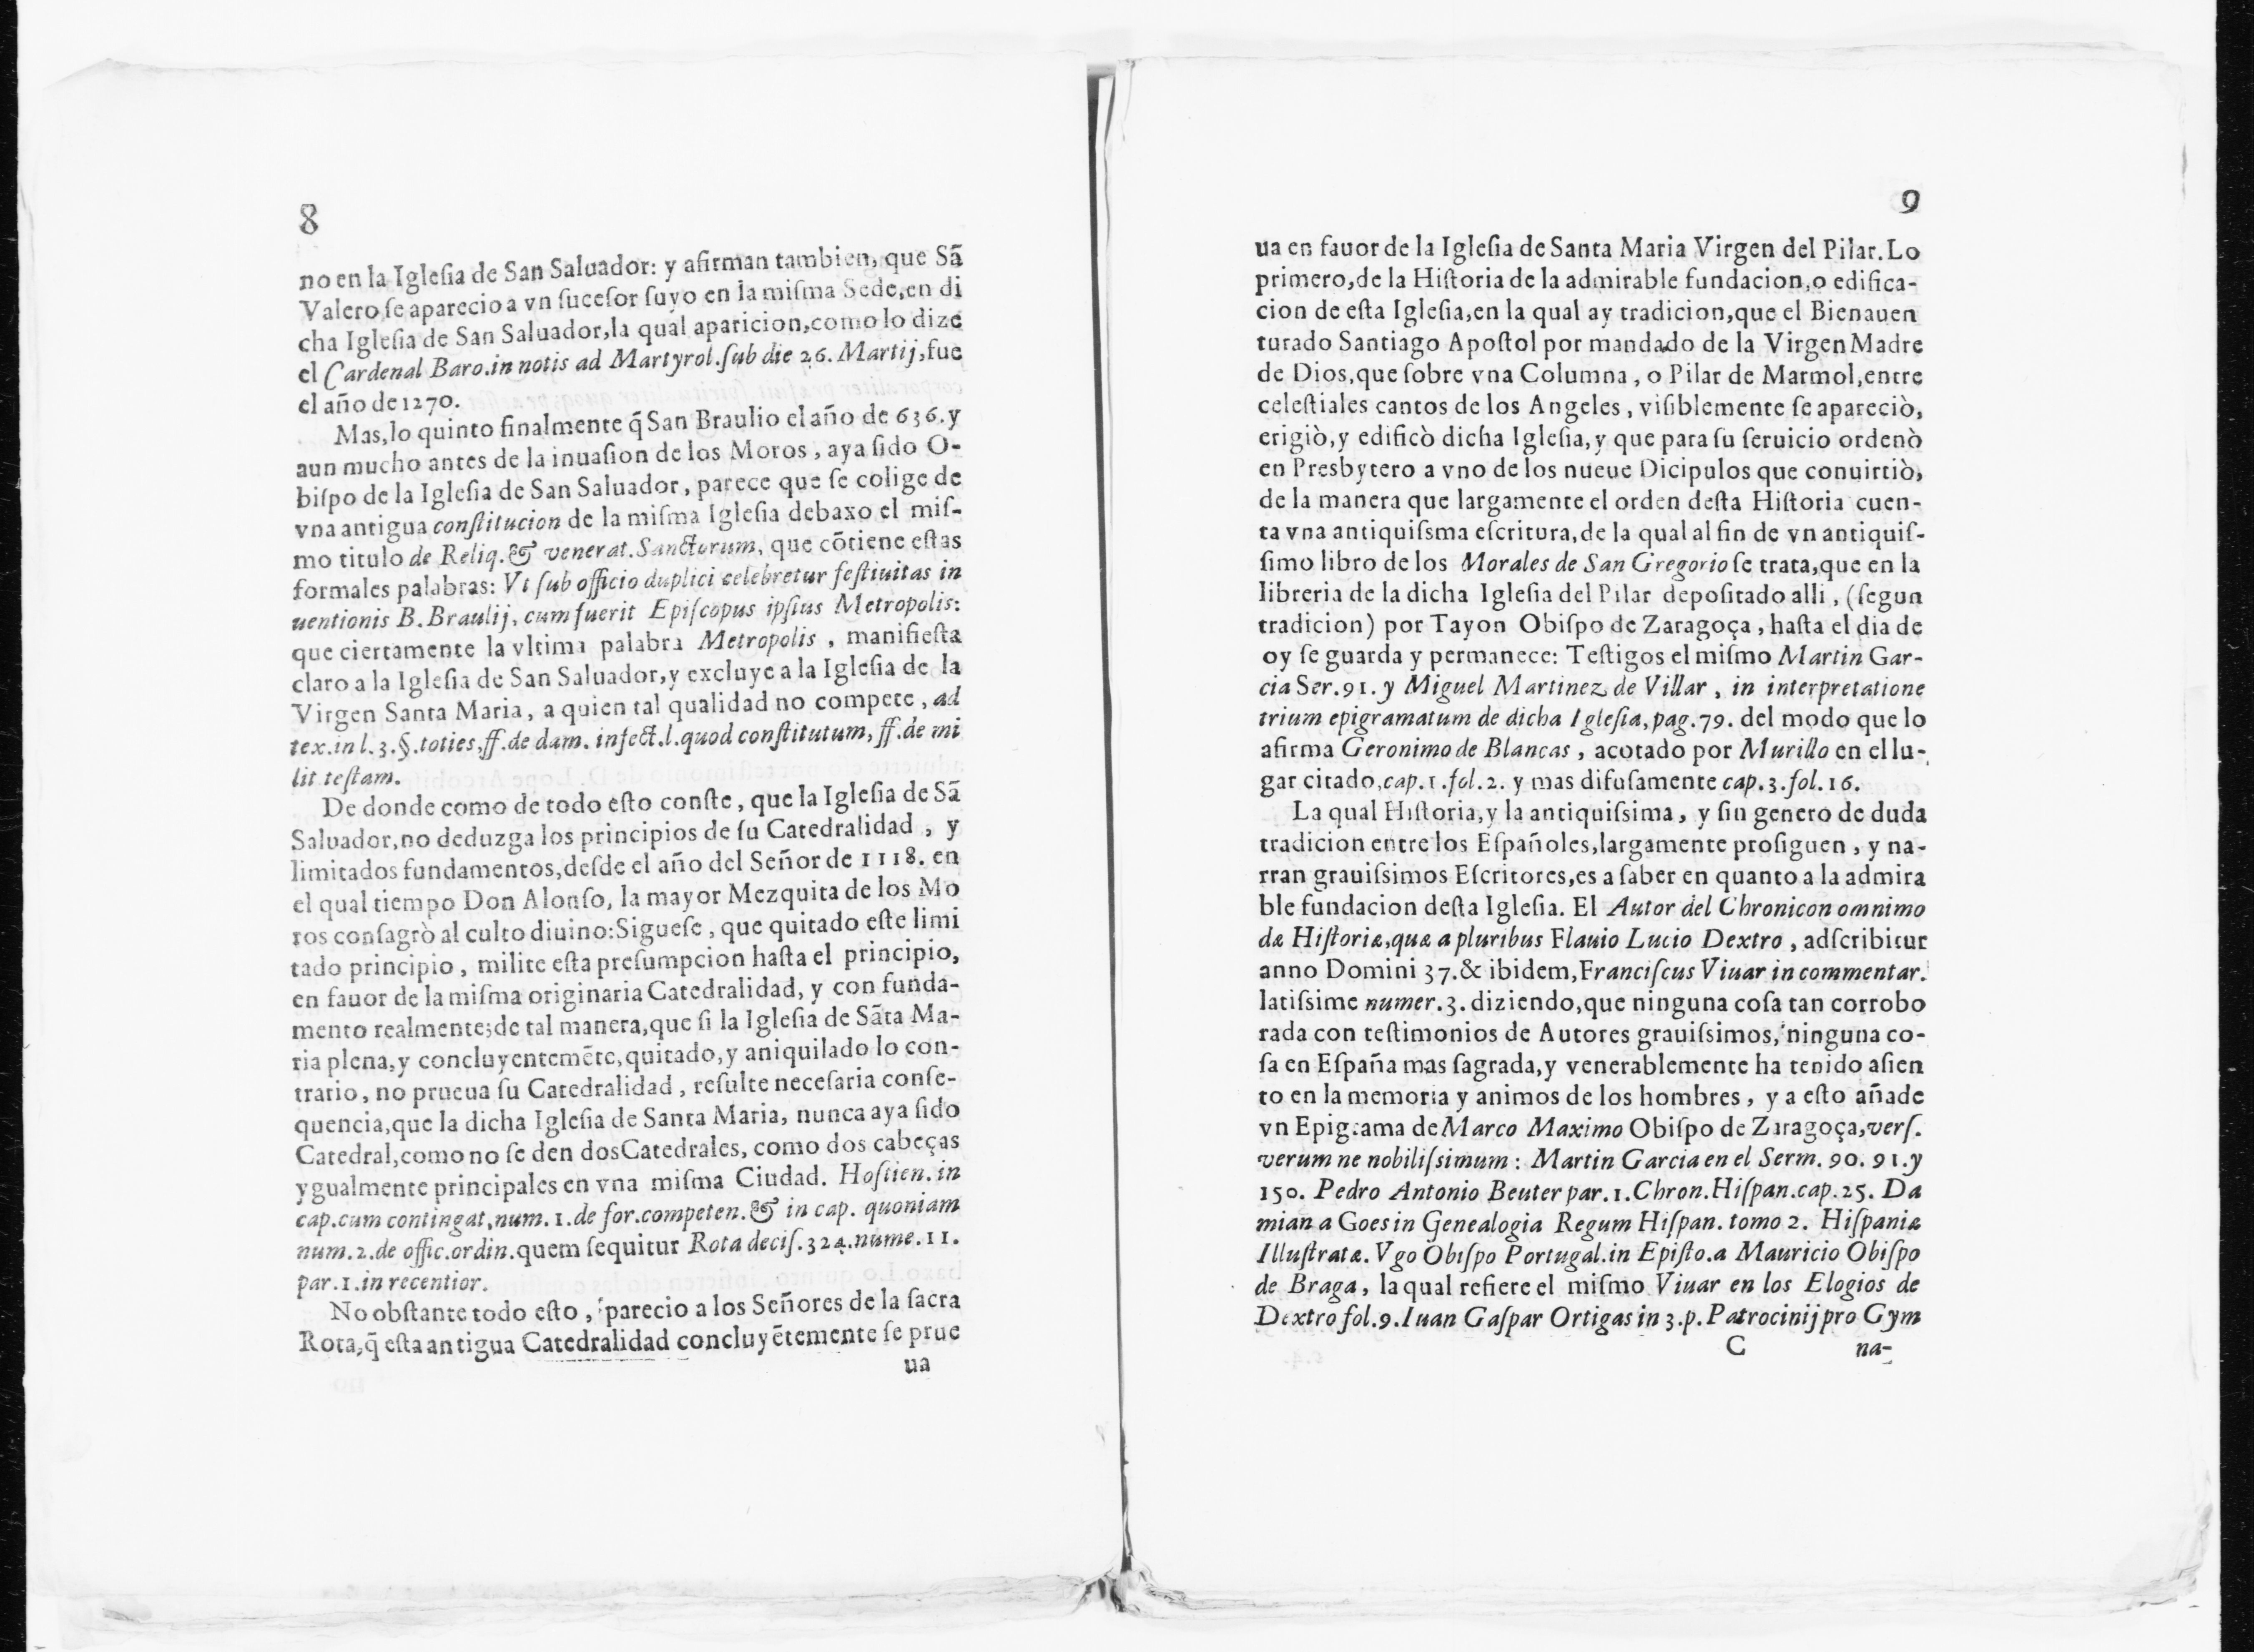 8
no en la Iglesia de San Saluador: y afirman tambien, que Sã
Valero se aparecio a vn sucesor suyo en la misma Sede, en di
cha Iglesia de San Saluador, la qual aparicion, como lo dize
el Cardenal Baro. in notis ad Martyrol. sub die 26. Martij, fue
el año de 1270.
Mas, lo quinto finalmente q̃ San Braulio el año de 636. y
aun mucho antes de la inuasion de los Moros, aya sido O-
bispo de la Iglesia de San Saluador, parece que se colige de
vna antigua constitucion de la misma Iglesia debaxo el mis-
mo titulo de Reliq. & venerat. Sanctorum, que cõtiene estas
formales palabras: Vt sub officio duplici celebretur festiuitas in
uentionis B. Braulij, cum fuerit Episcopus ipsius Metropolis:
que ciertamente la vltima palabra Metropolis, manifiesta
claro a la Iglesia de San Saluador, y excluye a la Iglesia de la
Virgen Santa Maria, a quien tal qualidad no compete, ad
tex. in l. 3. §. toties, ff. de dam. infect. l. quod constitutum, ff. de mi
lit testam.
De donde como de todo esto conste, que la Iglesia de Sã
Saluador, no deduzga los principios de su Catedralidad, y
limitados fundamentos, desde el año del Señor de 1118. en
el qual tiempo Don Alonso, la mayor Mezquita de los Mo
ros consagrò al culto diuino: Siguese, que quitado este limi
tado principio, milite esta presumpcion hasta el principio,
en fauor de la misma originaria Catedralidad, y con funda-
mento realmente; de tal manera, que si la Iglesia de Sãta Ma-
ria plena, y concluyentemẽte, quitado, y aniquilado lo con-
trario, no prueua su Catedralidad, resulte necesaria conse-
quencia, que la dicha Iglesia de Santa Maria, nunca aya sido
Catedral, como no se den dos Catedrales, como dos cabeças
ygualmente principales en vna misma Ciudad. Hostien. in
cap. cum contingat, num. 1. de for. competen. & in cap. quoniam
num. 2. de offic. ordin. quem sequitur Rota decis. 324. nume. 11.
par. 1. in recentior.
No obstante todo esto, parecio a los Señores de la sacra
Rota, q̃ esta antigua Catedralidad concluyẽtemente se prue
ua
9
ua en fauor de la Iglesia de Santa Maria Virgen del Pilar. Lo
primero, de la Historia de la admirable fundacion, o edifica-
cion de esta Iglesia, en la qual ay tradicion, que el Bienauen
turado Santiago Apostol por mandado de la Virgen Madre
de Dios, que sobre vna Columna, o Pilar de Marmol, entre
celestiales cantos de los Angeles, visiblemente se apareciò,
erigiò, y edificò dicha Iglesia, y que para su seruicio ordenò
en Presbytero a vno de los nueue Dicipulos que conuirtiò,
de la manera que largamente el orden desta Historia cuen-
ta vna antiquissma escritura, de la qual al fin de vn antiquis-
simo libro de los Morales de San Gregorio se trata, que en la
libreria de la dicha Iglesia del Pilar depositado alli, (segun
tradicion) por Tayon Obispo de Zaragoça, hasta el dia de
oy se guarda y permanece: Testigos el mismo Martin Gar-
cia Ser. 91. y Miguel Martinez de Villar, in interpretatione
trium epigramatum de dicha Iglesia, pag. 79. del modo que lo
afirma Geronimo de Blancas, acotado por Murillo en el lu-
gar citado, cap. 1. fol. 2. y mas difusamente cap. 3. fol. 16.
La qual Historia, y la antiquissima, y sin genero de duda
tradicion entre los Españoles, largamente prosiguen, y na-
rran grauissimos Escritores, es a saber en quanto a la admira
ble fundacion desta Iglesia. El Autor del Chronicon omnimo
dæ Historiæ, quæ a pluribus Flauio Lucio Dextro, adscribitur
anno Domini 37. & ibidem, Franciscus Viuar in commentar.
latissime numer. 3. diziendo, que ninguna cosa tan corrobo
rada con testimonios de Autores grauissimos, ninguna co-
sa en España mas sagrada, y venerablemente ha tenido asien
to en la memoria y animos de los hombres, y a esto añade
vn Epigrama de Marco Maximo Obispo de Zaragoça, vers.
verum ne nobilissimum: Martin Garcia en el Serm. 90. 91. y
150. Pedro Antonio Beuter par. 1. Chron. Hispan. cap. 25. Da
mian a Goes in Genealogia Regum Hispan. tomo 2. Hispaniæ
Illustratæ. Vgo Obispo Portugal. in Episto. a Mauricio Obispo
de Braga, la qual refiere el mismo Viuar en los Elogios de
Dextro fol. 9. Iuan Gaspar Ortigas in 3. p. Patrocinij pro Gym
C na-